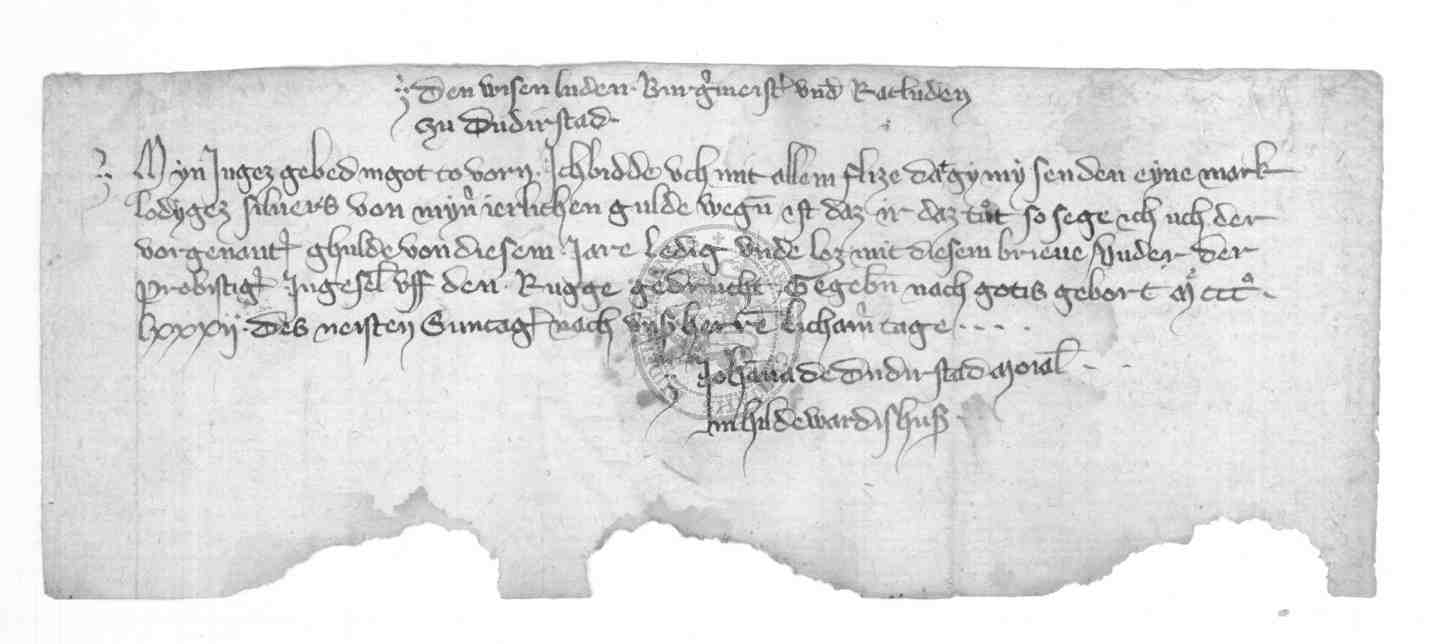 Den wisen luden Burg̉meist̉ vnd Ratluden
zu Dudirstad
Myn Inges gebed in got to vorn. Ich bidde vch mit allem flize dat gy my senden eyne mark
lodyges siluers von myn̉ ierlichen gulde wegn̄ ist daz ir daz tůt so sege ich uch der
vorgenant̉ ghulde von diesem Jare ledig vnde loz mit diesem brieue Vnder der
probistig̉ Ingesel̉ vff den Rugge gedrucht Gegebn̄ nach gotis gebort Mͦ cccͦ
lxxxij des neisten Suntag̉ nach vnß herrē licham̉ tage
Johan̄a de Dudirstad monial̉
in hildewardishuß